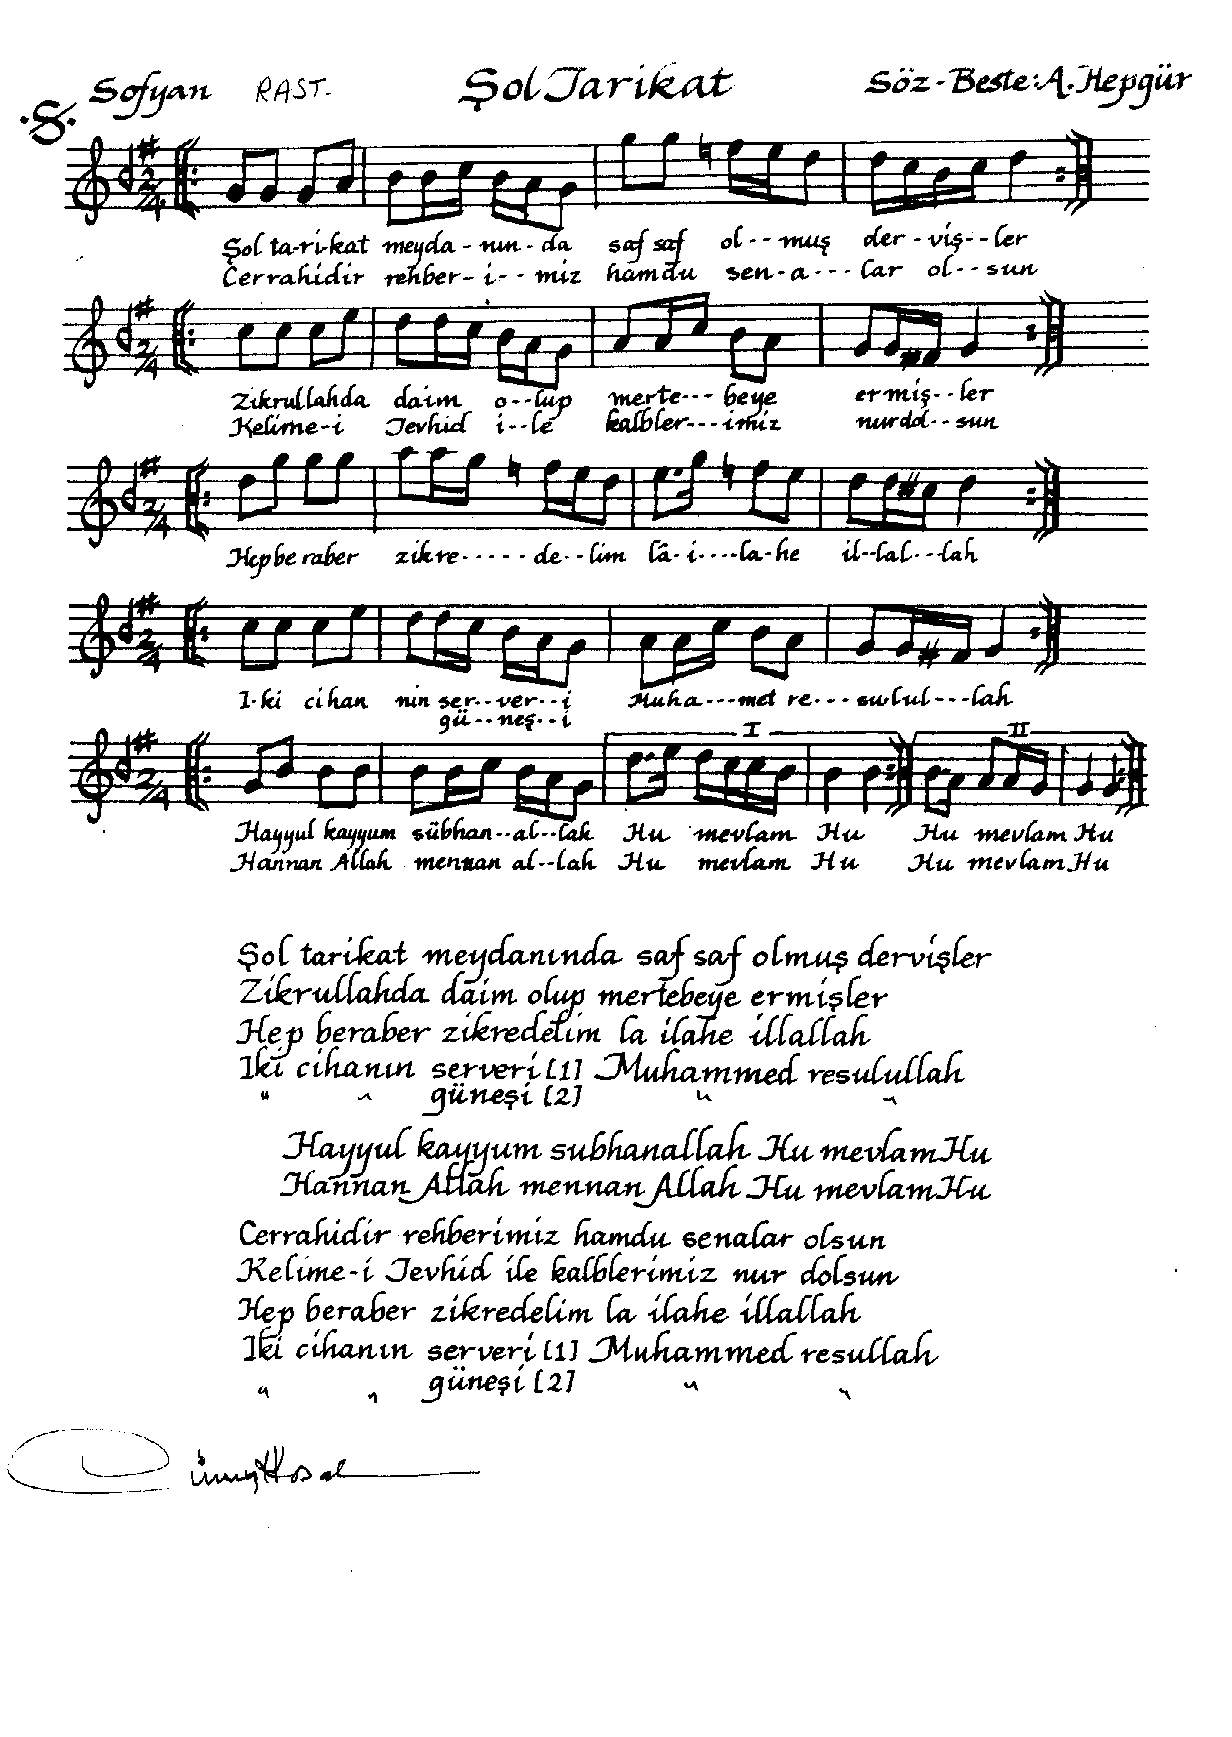 Sofyan RAST. Şol Tarikat Söz-Beste: A. Hepgür
Şol ta-ri-kat meyda-nın-da saf saf ol--muş der-viş--ler
Cerrahidir rehber-i--miz hamdu sen-a---lar ol--sun
Zikrullahda daim o--lup merte---beye ermiş--ler
Kelime-i Tevhid i--le kalbler---imiz nurdol--sun
Hep be raber zikre-----de--lim lâ-i----la-he il--lal--lah
I-ki cihan nin ser--ver--i Muha---met re---sulul---lah
gü--neş--i
I II
Hayyul kayyum sübhan--al--lah Hu mevlam Hu Hu mevlam Hu
Hannan Allah mennan al--lah Hu mevlam Hu Hu mevlam Hu
Şol tarikat meydanında saf saf olmuş dervişler
Zikrullahda daim olup mertebeye ermişler
Hep beraber zikredelim la ilahe illallah
Iki cihanın serveri [1] Muhammed resulullah
" " güneşi [2] " "
Hayyul kayyum subhanallah Hu mevlam Hu
Hannan Allah mennan Allah Hu mevlam Hu
Cerrahidir rehberimiz hamdu senalar olsun
Kelime-i Tevhid ile kalblerimiz nur dolsun
Hep beraber zikredelim la ilahe illallah
Iki cihanın serveri [1] Muhammed resullah
" " güneşi [2] " "